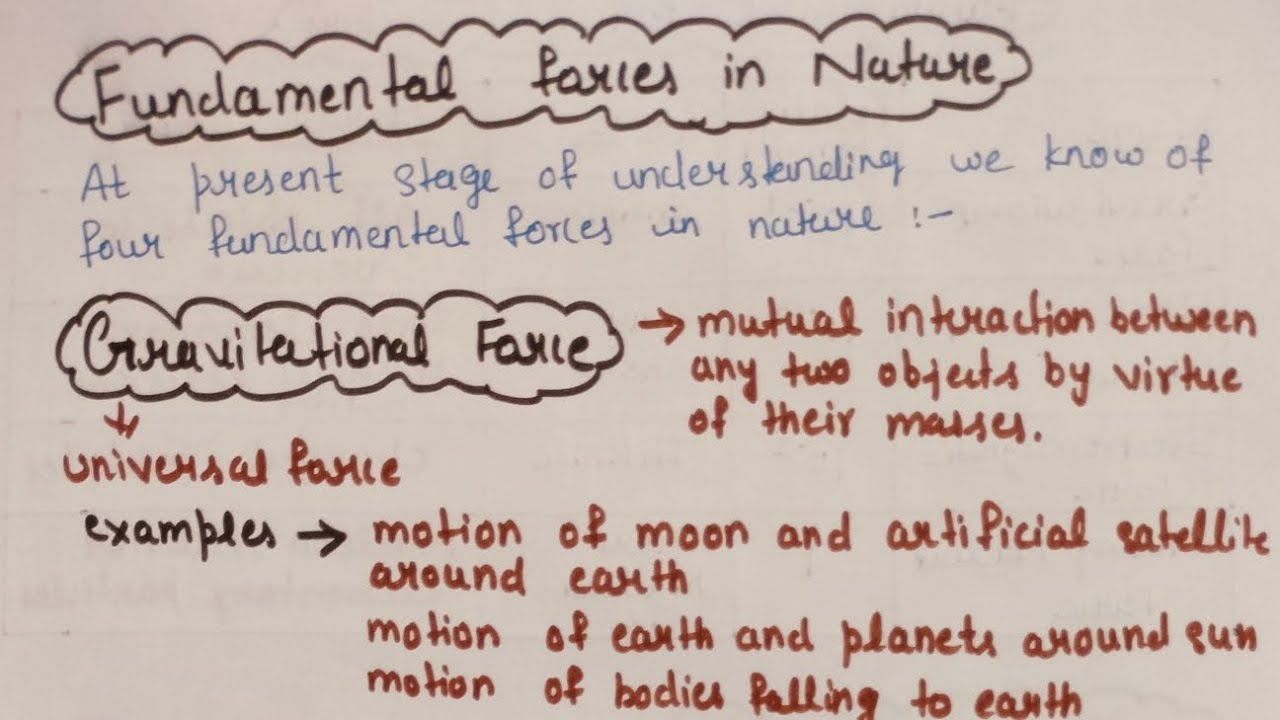 Fundamental forces in Nature
At present stage of understanding we know of
four fundamental forces in nature :-
Gravitational Force → mutual interaction between
any two objects by virtue
of their masses.
↓
universal force
examples → motion of moon and artificial satellite
around earth
motion of earth and planets around sun
motion of bodies falling to earth